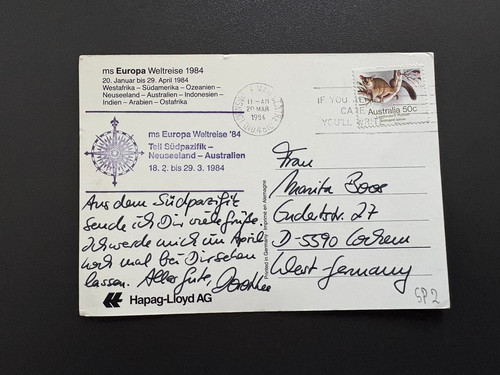 ms Europa Weltreise 1984
20. Januar bis 29. April 1984
Westafrika – Südamerika – Ozeanien –
Neuseeland – Australien – Indonesien –
Indien – Arabien – Ostafrika
ms Europa Weltreise '84
Teil Südpazifik –
Neuseeland – Australien
18. 2. bis 29. 3. 1984
Aus dem Südpazifik
sende ich Dir viele Grüße.
Ich werde mich im April
noch mal bei Dir sehen
lassen. Alles Gute, Dorothee
Hapag-Lloyd AG
Printed in Germany · Imprimé en Allemagne
11 - AM
20 MAR
1984
IF YOU
CARE
YOU'LL WRITE
Australia 50c
Frau
Marita Boos
Endertstr. 27
D-5590 Cochem
West Germany
SP 2